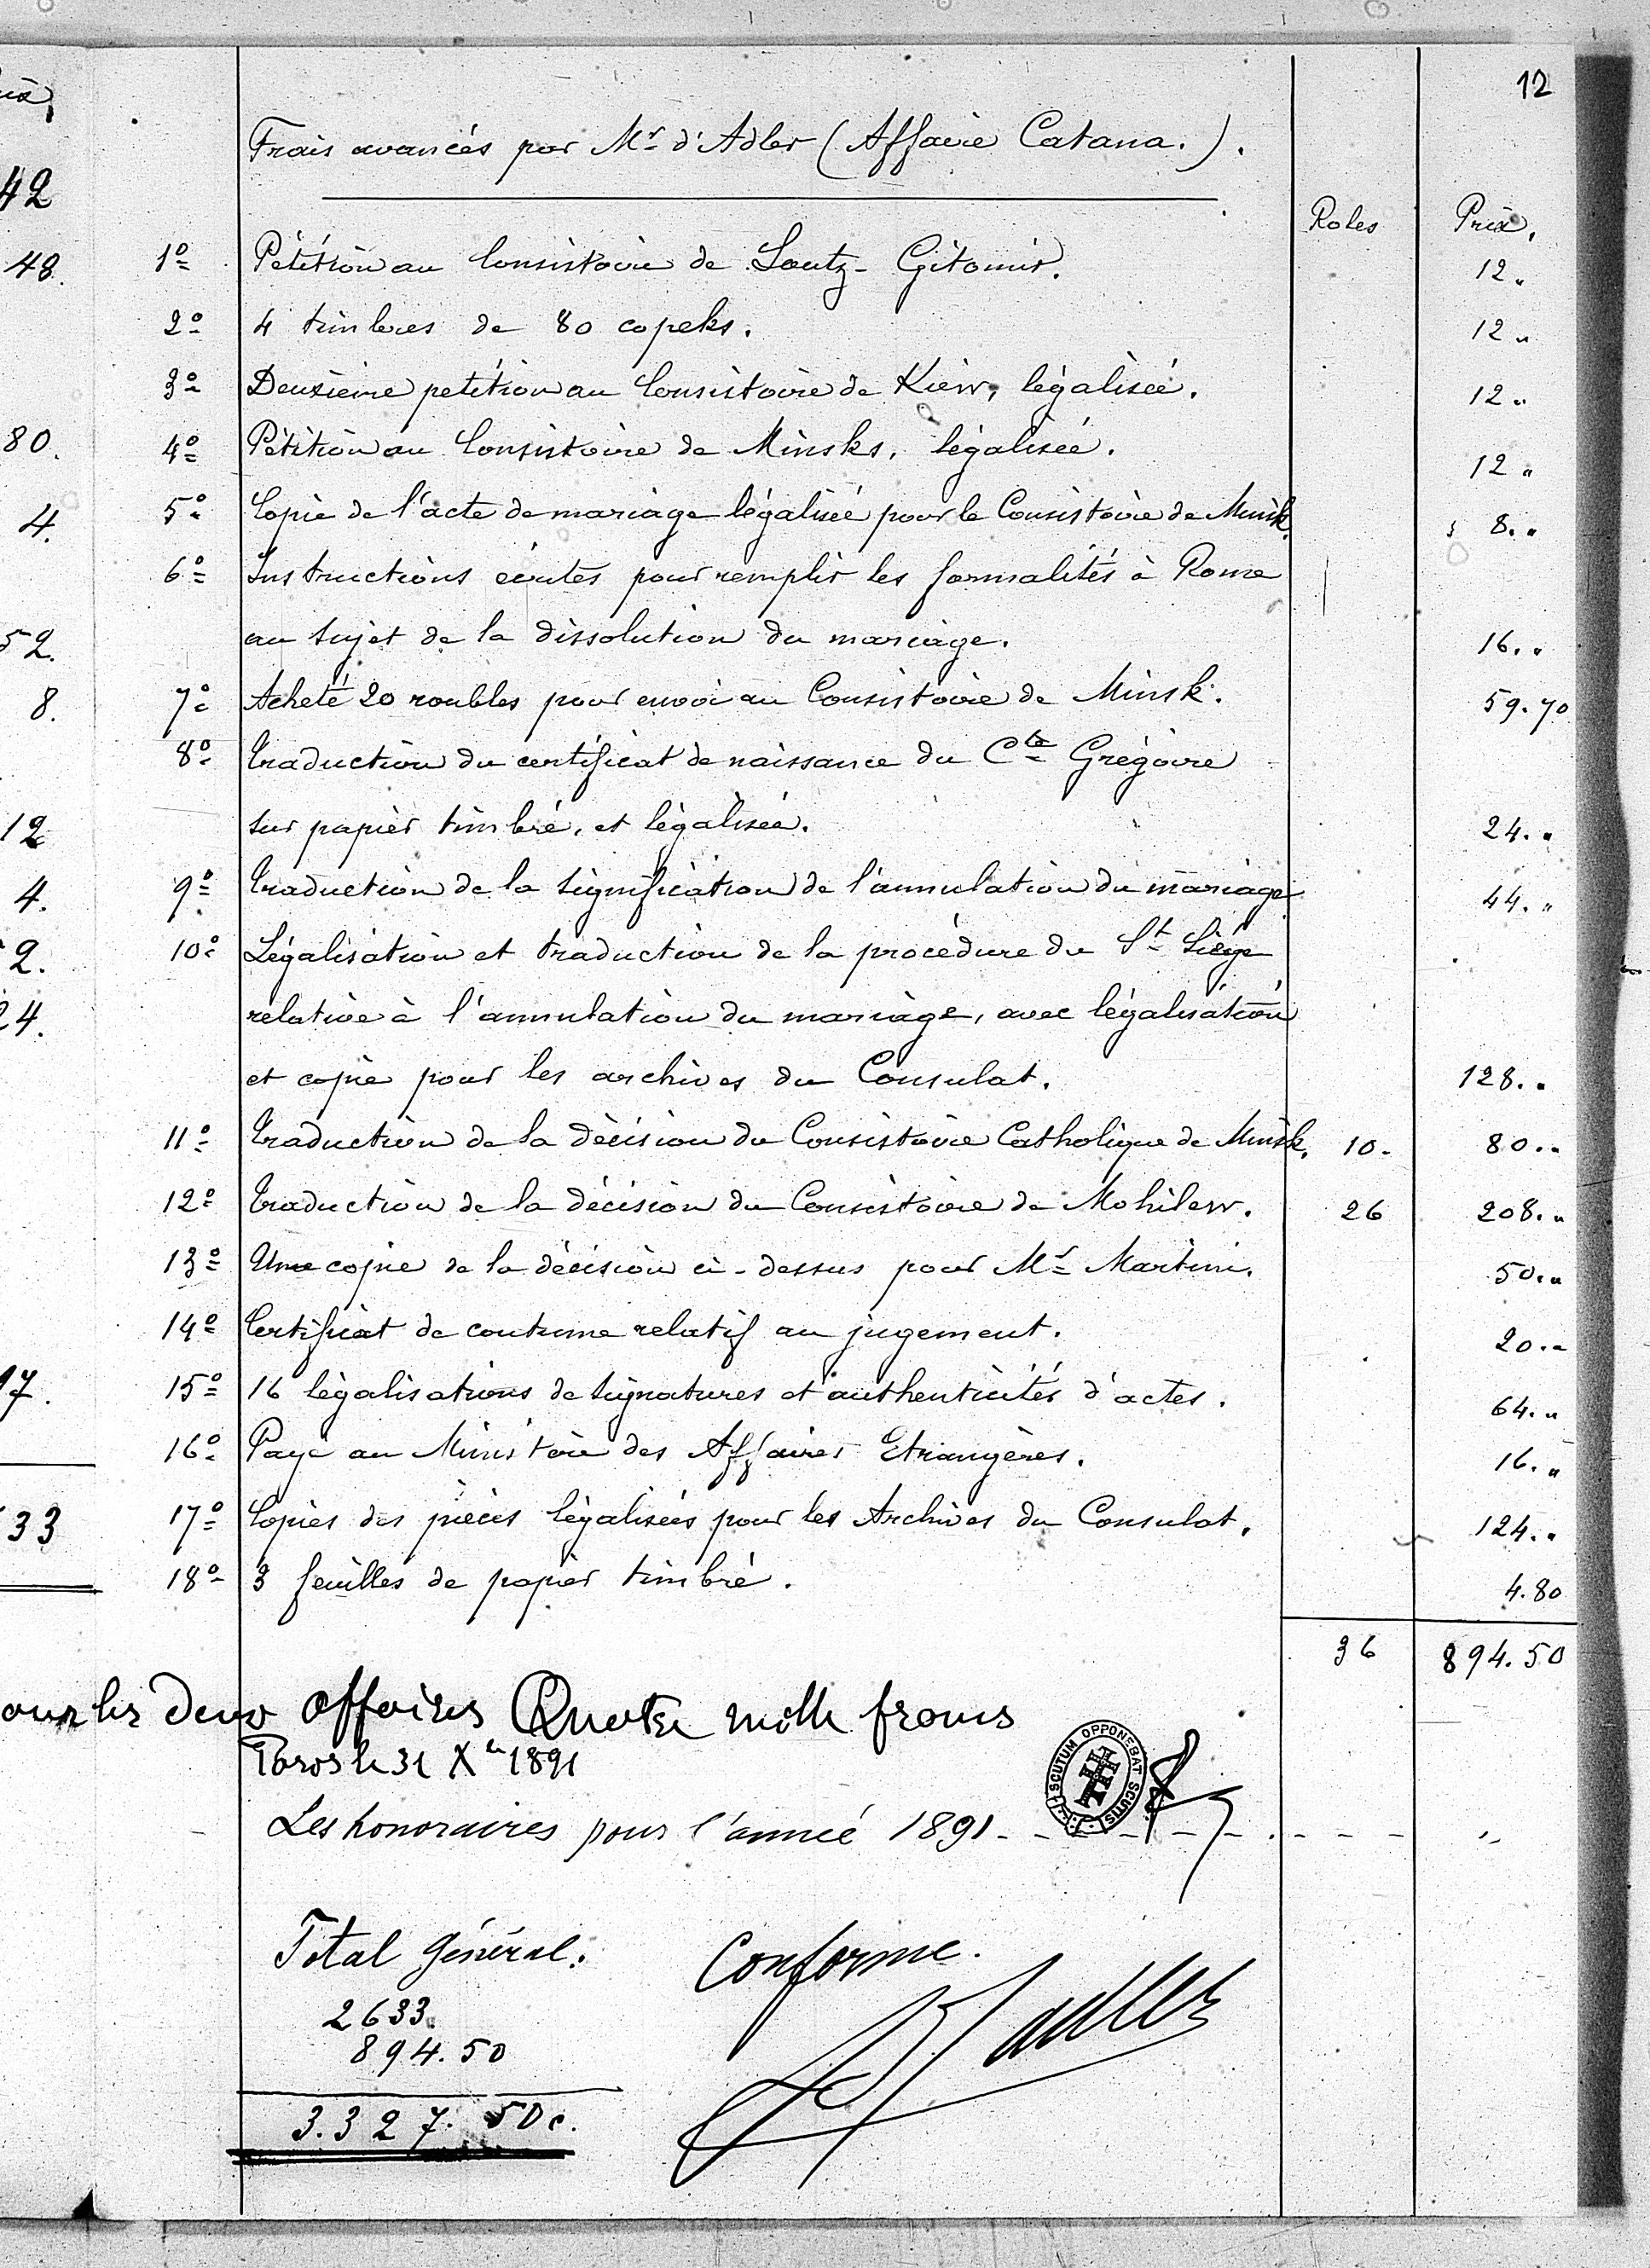 12
Frais avancés par Mr d'Adler (Affaire Catana.).
Roles Prix.
42
48.
1º Pétition au Consistoire de Loutz-Gitomir. 12 "
2º 4 timbres de 80 copeks. 12 "
3º Deuxième petition au Consistoire de Kiew, légalisée. 12 "
80. 4º Pétition au Consistoire de Minsks, légalisée. 12 "
4. 5º Copie de l'acte de mariage légalisée pour le Consistoire de Minsk. 8. "
6º Instructions écrites pour remplir les formalités à Rome
52. au sujet de la dissolution du mariage. 16. "
8. 7º Acheté 20 roubles pour envoi au Consistoire de Minsk. 59.70
8º Traduction du certificat de naissance du Cte Grégoire
12 sur papier timbré, et légalisée. 24. "
4. 9º Traduction de la signification de l'annulation du mariage 44. "
2. 10º Légalisation et traduction de la procédure du St Siège
24. relative à l'annulation du mariage, avec légalisation
et copie pour les archives du Consulat. 128. "
11º Traduction de la décision du Consistoire Catholique de Minsk. 10. 80. "
12º Traduction de la décision du Consistoire de Mohilew. 26 208. "
13º Une copie de la décision ci-dessus pour Mr Martini. 50. "
14º Certificat de coutume relatif au jugement. 20. "
17. 15º 16 légalisations de signatures et authenticités d'actes. 64. "
16º Payé au Ministère des Affaires Etrangères. 16. "
33 17º Copies des pièces légalisées pour les Archives du Consulat. 124. "
18º 3 feuilles de papier timbré. 4.80
36 894.50
our les deux affaires Quatre mille francs
Paris le 31 Xbre 1891
SCUTUM OPPONEBAT SCUTIS
Les honoraires pour l'année 1891 - - - - - - - - - "
Total Général. Conforme.
2633.
894.50
3.327. 50 c.